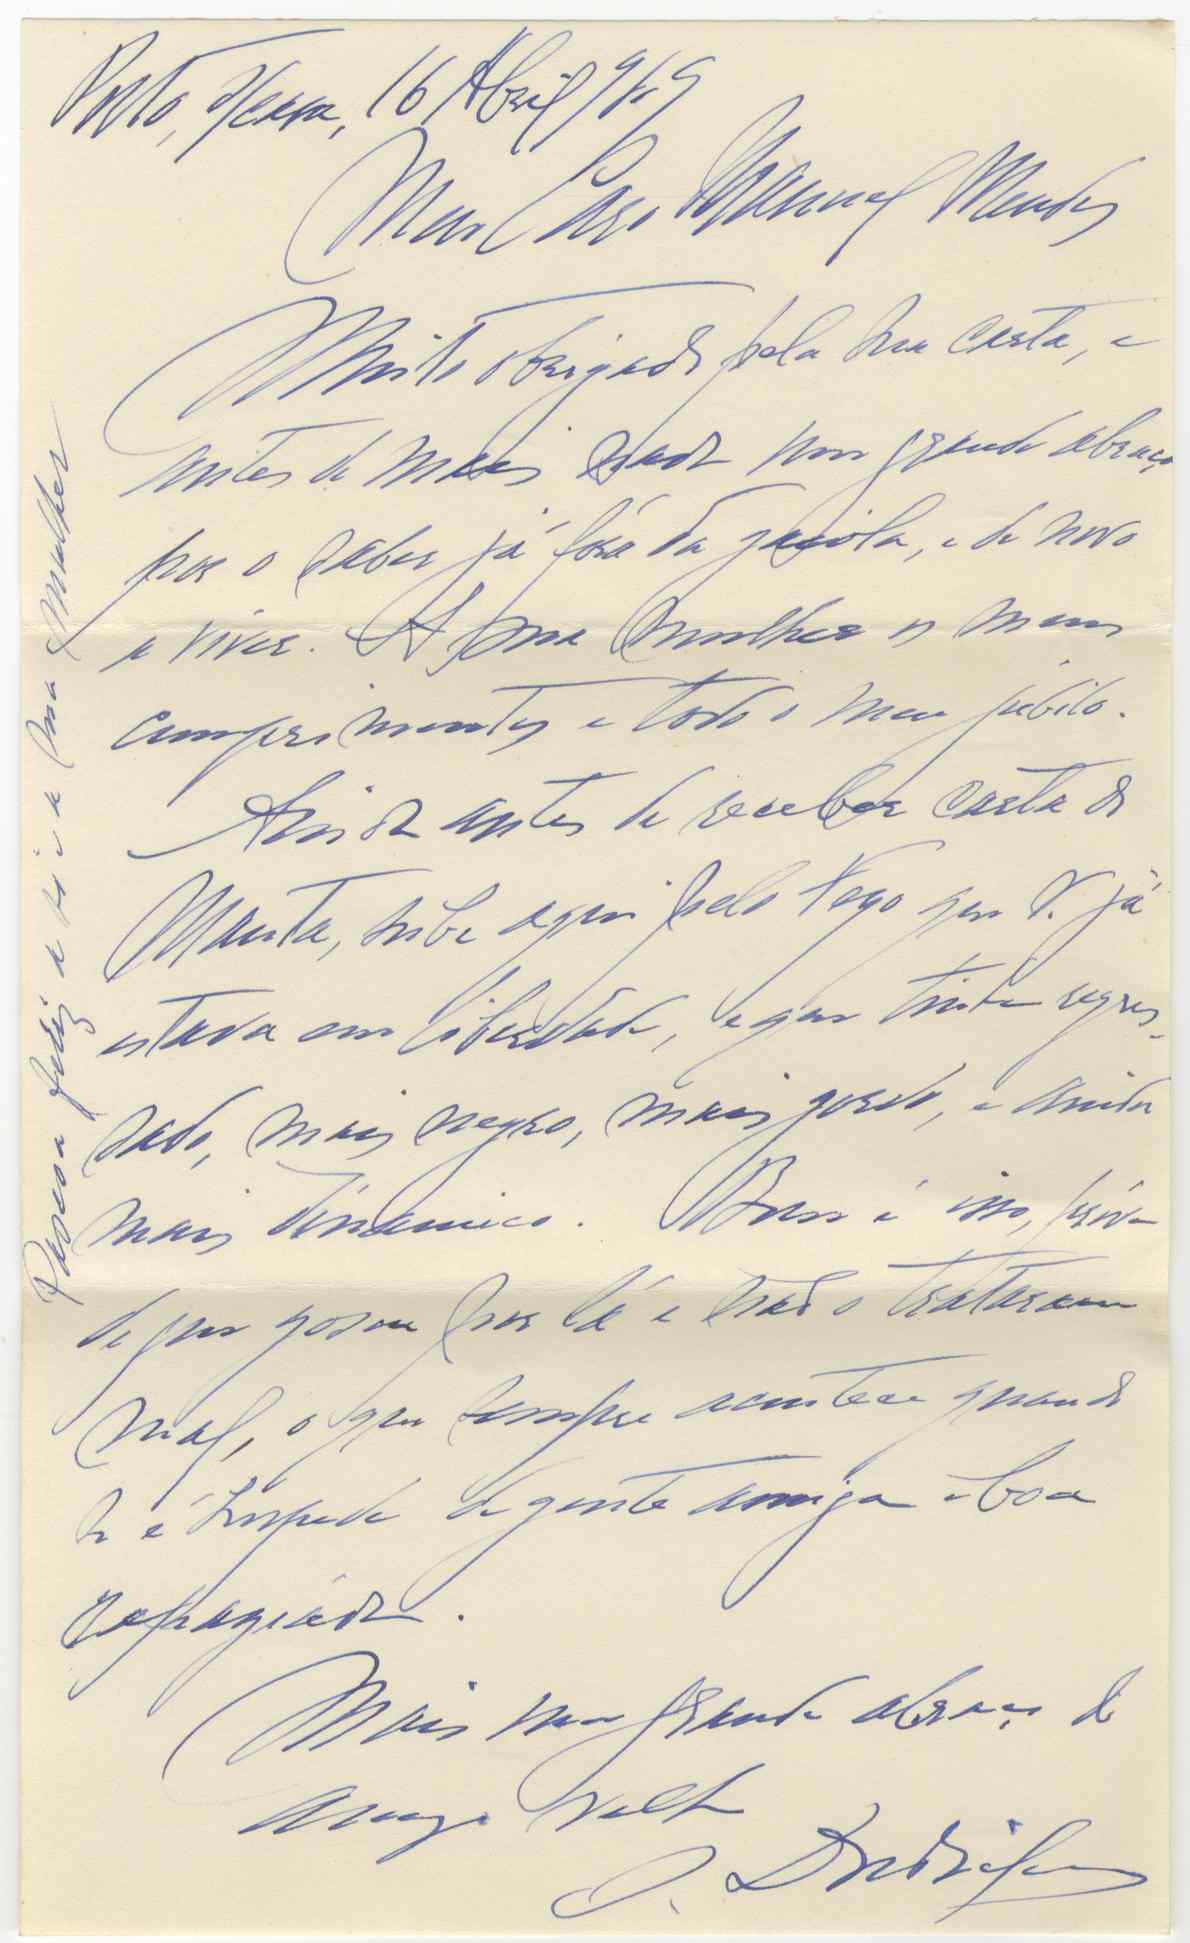 Porto, 16 Abril 969
Meu Caro Manuel Mendes
Muito obrigado pela sua carta, e
antes de mais nada um grande abraço
por o saber já fora da gaiola, e de novo
a viver. A sua mulher os meus
cumprimentos e todo o meu júbilo.
Ainda antes de receber carta do
Manta, soube aqui pelo que V. já
estava em liberdade, e que tinha regres-
sado, mais negro, mais gordo, e ainda
mais dinâmico. Bom é isso, prova
de que gosou por lá e não o trataram
mal, o que sempre acontece quando
se é hóspede de gente amiga e boa
rapaziada.
Mais um grande abraço do
amigo velho
Pascoa feliz a si e a sua mulher